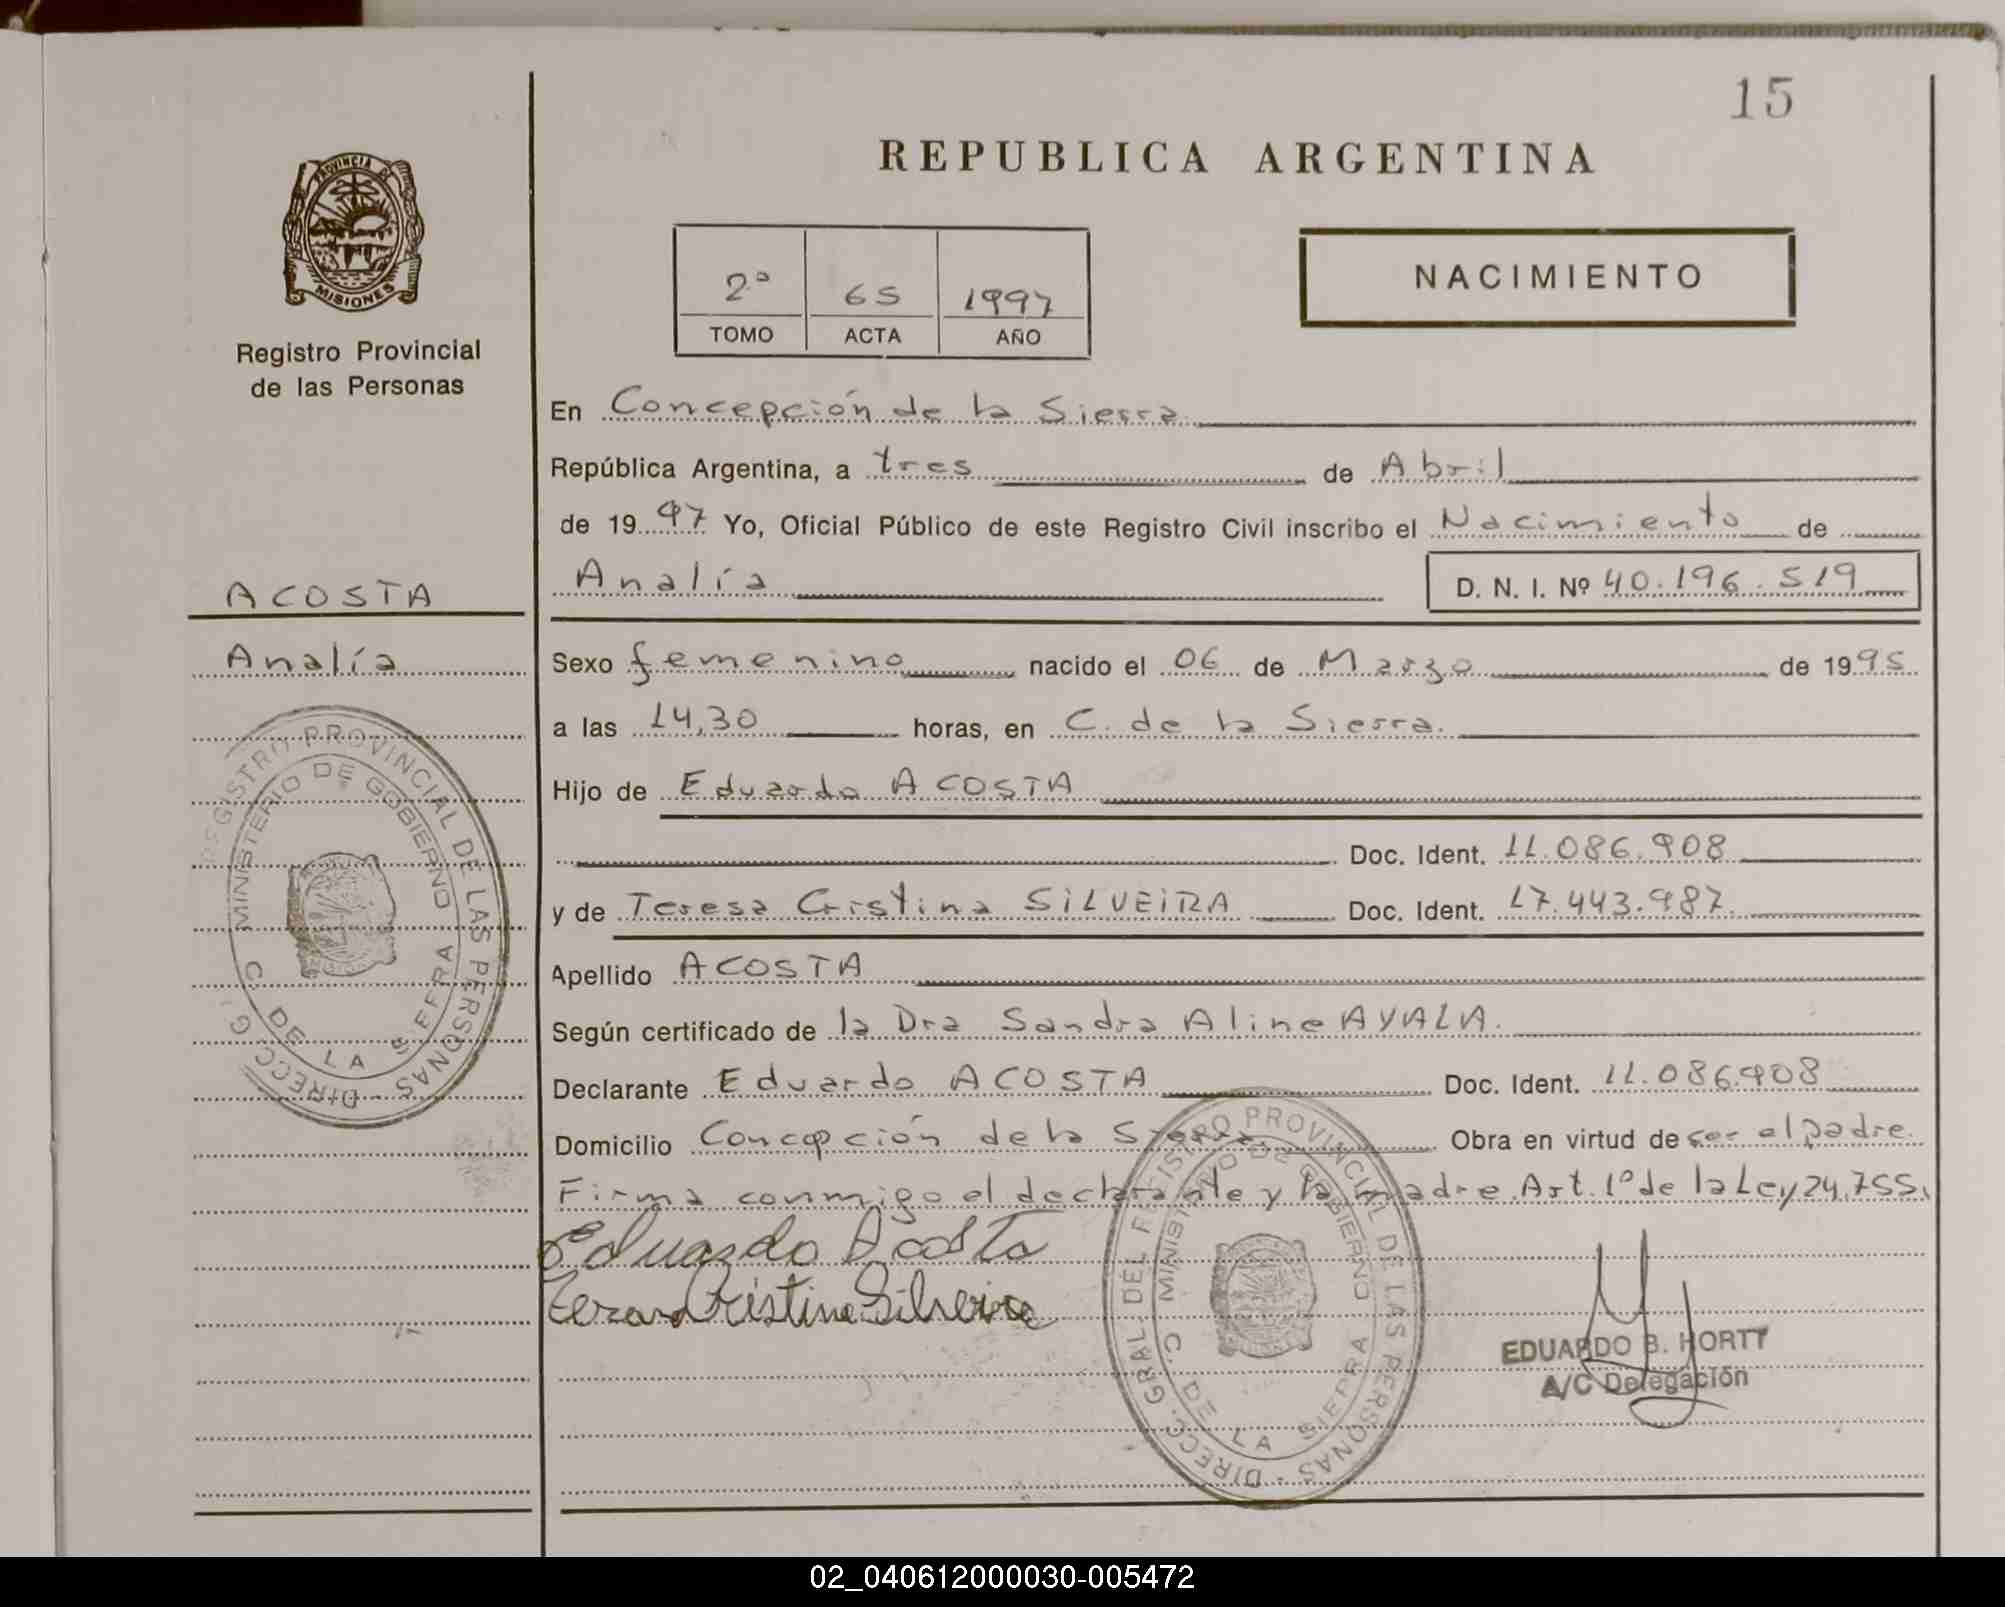 15
REPUBLICA ARGENTINA
PROVINCIA DE
MISIONES
Registro Provincial
de las Personas
2ª 65 1997
TOMO ACTA AÑO
NACIMIENTO
En Concepción de la Sierra
República Argentina, a tres de Abril
de 19 97 Yo, Oficial Público de este Registro Civil inscribo el Nacimiento de
Analía D. N. I. Nº 40.196.519
ACOSTA
Analía
Sexo femenino nacido el 06 de Marzo de 1995
a las 14,30 horas, en C. de la Sierra.
Hijo de Eduardo ACOSTA
Doc. Ident. 11.086.908
y de Teresa Cristina SILVEIRA Doc. Ident. 17.443.987.
Apellido ACOSTA
Según certificado de la Dra Sandra Aline AYALA.
Declarante Eduardo ACOSTA Doc. Ident. 11.086.908
Domicilio Concepción de la Sierra. Obra en virtud de ser el padre.
Firma conmigo el declarante y la madre. Art. 1º de la Ley 24.755.
Eduardo Acosta
Tereza Cristina Silveira
REGISTRO PROVINCIAL DE LAS PERSONAS - DIRECC. G
MINISTERIO DE GOBIERNO
C. DE LA SIERRA
DIRECC. GRAL. DEL REGISTRO PROVINCIAL DE LAS PERSONAS -
MINISTERIO DE GOBIERNO
C. DE LA SIERRA
EDUARDO B. HORTT
A/C Delegación
02_040612000030-005472